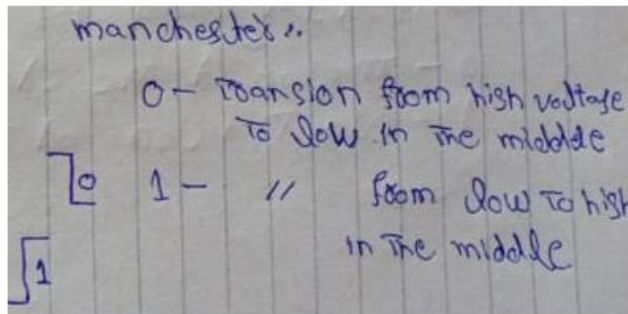 manchester :.
0 - Transion from high voltage
To low in The middle
0 1 - // from low To high
in The middle
1